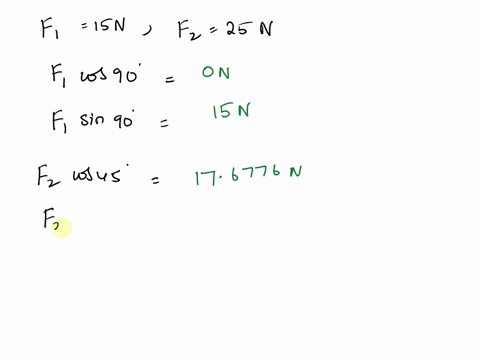 F₁ = 15N , F₂ = 25 N
F₁ cos 90° = 0N
F₁ sin 90° = 15N
F₂ cos 45° = 17.6776 N
F₂